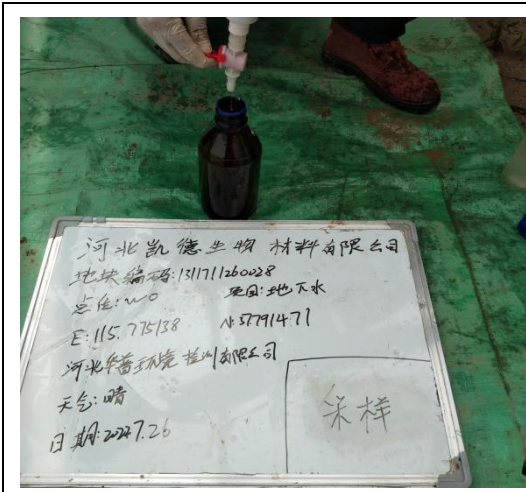 河北凯德生物材料有限公司
地块编码:1311711260028
点位:W0 项目:地下水
E:115.775138 N:37.791471
河北华普环境检测有限公司
天气:晴
日期:2024.7.26
采样